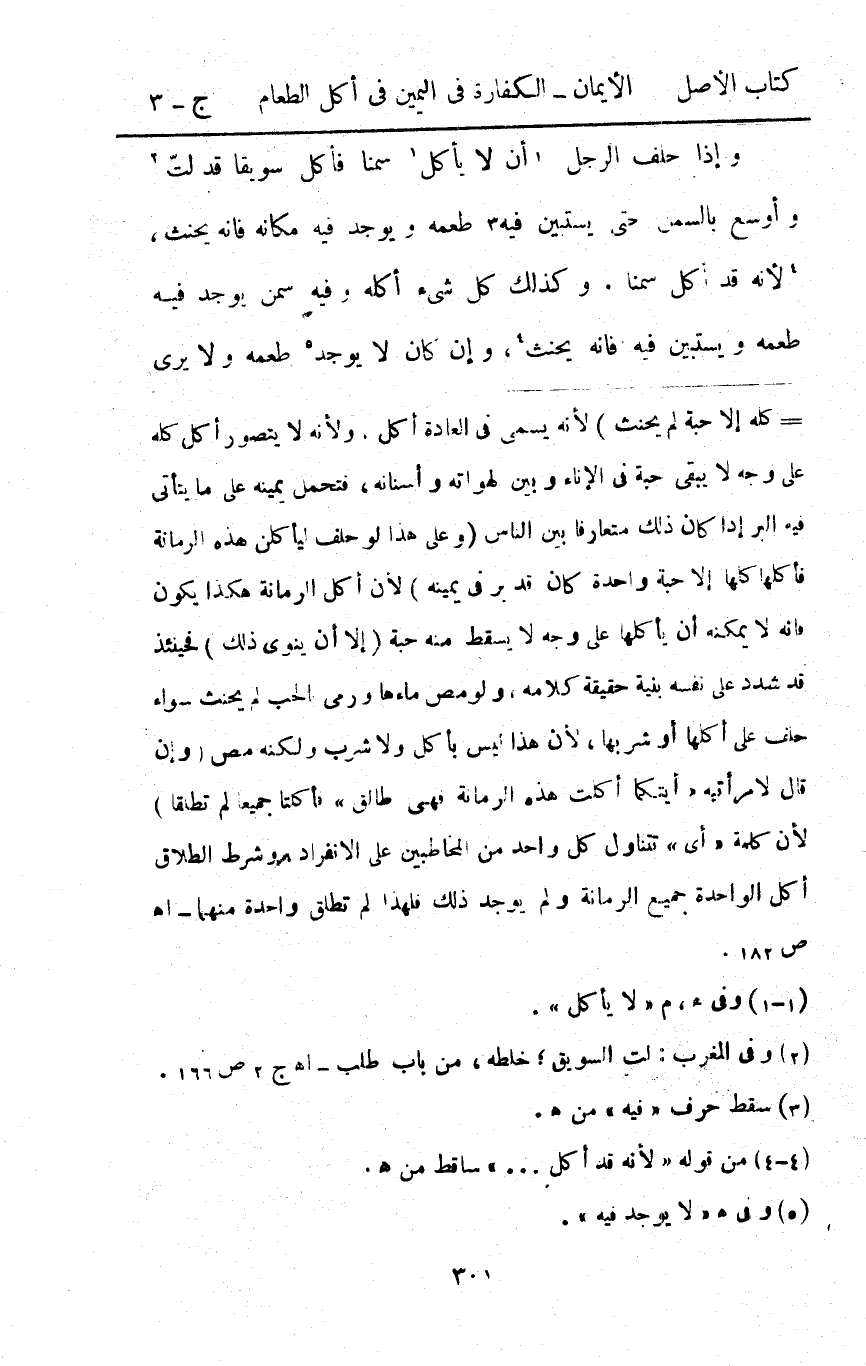 كتاب الأصل الأيمان ــ الكفارة فى اليمين فى أكل الطعام ج ــ ٣
و إذا حلف الرجل ١ أن لا يأكل ١ سمنا فأكل سويقا قد لتّ ٢
و أوسع بالسمن حتى يستبين فيه ٣ طعمه و يوجد فيه مكانه فانه يحنث ،
٤ لأنه قد أكل سمنا . و كذلك كل شىء أكله و فيه سمن يوجد فيه
طعمه و يستبين فيه فانه يحنث ٤ ، و إن كان لا يوجد ٥ طعمه و لا يرى
= كله إلا حبة لم يحنث ) لأنه يسمى فى العادة أكل . ولأنه لا يتصور أكل كله
على وجه لا يبقى حبة فى الإناء و بين لهواته و أسنانه ، فتحمل يمينه على ما يتأتى
فيه البر إذا كان ذلك متعارفا بين الناس ( و على هذا لو حلف ليأكلن هذه الرمانة
فأكلها كلها إلا حبة واحدة كان قد بر فى يمينه ) لأن أكل الرمانة هكذا يكون
فانه لا يمكنه أن يأكلها على وجه لا يسقط منه حبة ( إلا أن ينوى ذلك ) فحينئذ
قد شدد على نفسه بنية حقيقة كلامه ، و لو مص ماءها و رمى الحب لم يحنث سواء
حلف على أكلها أو شربها ، لأن هذا ليس بأكل ولا شرب و لكنه مص ( و إن
قال لامرأتيه « أيتكما أكلت هذه الرمانة فهى طالق » فأكلتا جميعا لم تطلقا )
لأن كلمة « أى » تتناول كل واحد من المخاطبين على الانفراد و شرط الطلاق
أكل الواحدة جميع الرمانة و لم يوجد ذلك فلهذا لم تطلق واحدة منهما ــ اه
ص ١٨٢ .
(١-١) وفى ء ، م « لا يأكل » .
(٢) و فى المغرب : لت السويق ؛ خلطه ، من باب طلب ــ اه ج ٢ ص ١٦٦ .
(٣) سقط حرف « فيه » من ه .
(٤-٤) من قوله « لأنه قد أكل ... » ساقط من ه .
(٥) و فى ه « لا يوجد فيه » .
٣٠١